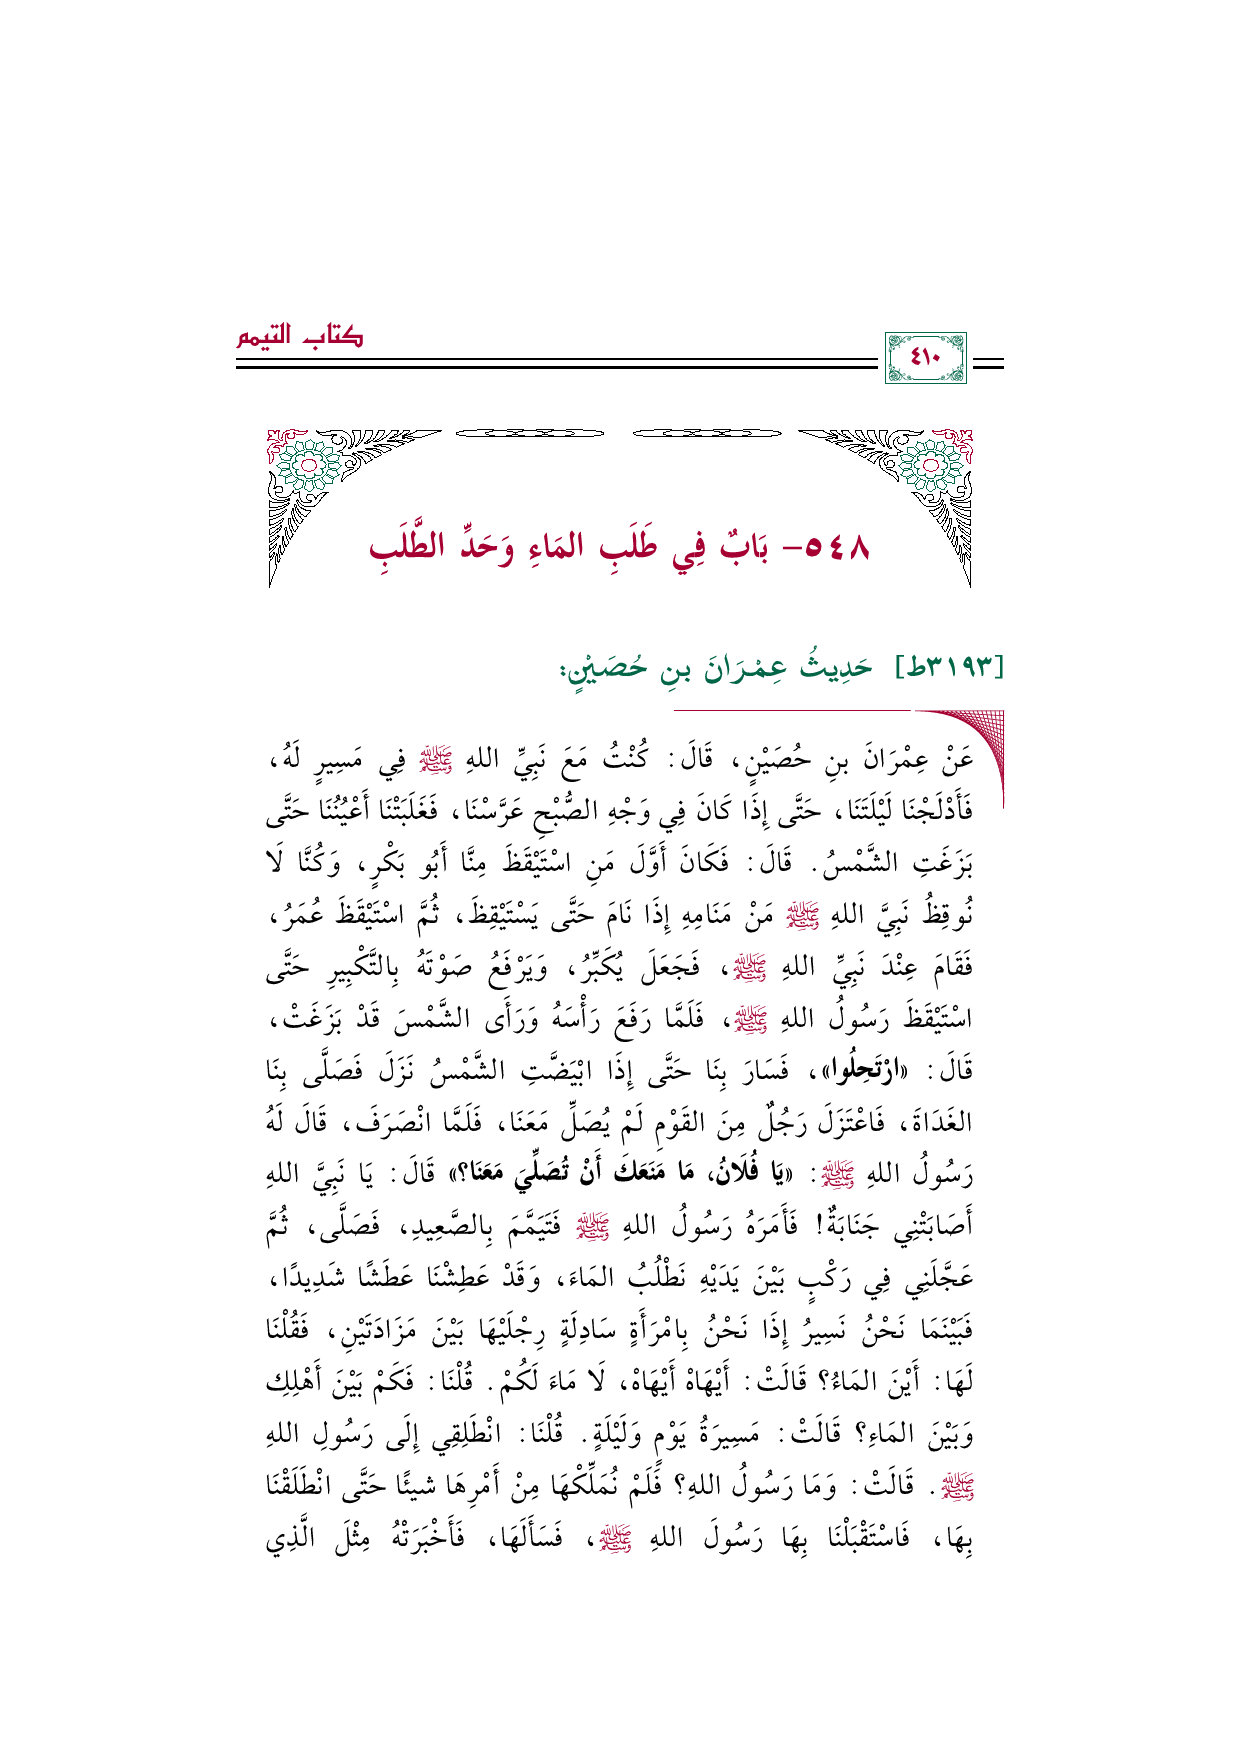 كتاب التيمم
٤١٠
٥٤٨- بَابٌ فِي طَلَبِ المَاءِ وَحَدِّ الطَّلَبِ
[٣١٩٣ط] حَدِيثُ عِمْرَانَ بنِ حُصَيْنٍ:
عَنْ عِمْرَانَ بنِ حُصَيْنٍ، قَالَ: كُنْتُ مَعَ نَبِيِّ اللهِ ﷺ فِي مَسِيرٍ لَهُ،
فَأَدْلَجْنَا لَيْلَتَنَا، حَتَّى إِذَا كَانَ فِي وَجْهِ الصُّبْحِ عَرَّسْنَا، فَغَلَبَتْنَا أَعْيُنُنَا حَتَّى
بَزَغَتِ الشَّمْسُ. قَالَ: فَكَانَ أَوَّلَ مَنِ اسْتَيْقَظَ مِنَّا أَبُو بَكْرٍ، وَكُنَّا لَا
نُوقِظُ نَبِيَّ اللهِ ﷺ مَنْ مَنَامِهِ إِذَا نَامَ حَتَّى يَسْتَيْقِظَ، ثُمَّ اسْتَيْقَظَ عُمَرُ،
فَقَامَ عِنْدَ نَبِيِّ اللهِ ﷺ، فَجَعَلَ يُكَبِّرُ، وَيَرْفَعُ صَوْتَهُ بِالتَّكْبِيرِ حَتَّى
اسْتَيْقَظَ رَسُولُ اللهِ ﷺ، فَلَمَّا رَفَعَ رَأْسَهُ وَرَأَى الشَّمْسَ قَدْ بَزَغَتْ،
قَالَ: «ارْتَحِلُوا»، فَسَارَ بِنَا حَتَّى إِذَا ابْيَضَّتِ الشَّمْسُ نَزَلَ فَصَلَّى بِنَا
الغَدَاةَ، فَاعْتَزَلَ رَجُلٌ مِنَ القَوْمِ لَمْ يُصَلِّ مَعَنَا، فَلَمَّا انْصَرَفَ، قَالَ لَهُ
رَسُولُ اللهِ ﷺ: «يَا فُلَانُ، مَا مَنَعَكَ أَنْ تُصَلِّيَ مَعَنَا؟» قَالَ: يَا نَبِيَّ اللهِ
أَصَابَتْنِي جَنَابَةٌ! فَأَمَرَهُ رَسُولُ اللهِ ﷺ فَتَيَمَّمَ بِالصَّعِيدِ، فَصَلَّى، ثُمَّ
عَجَّلَنِي فِي رَكْبٍ بَيْنَ يَدَيْهِ نَطْلُبُ المَاءَ، وَقَدْ عَطِشْنَا عَطَشًا شَدِيدًا،
فَبَيْنَمَا نَحْنُ نَسِيرُ إِذَا نَحْنُ بِامْرَأَةٍ سَادِلَةٍ رِجْلَيْهَا بَيْنَ مَزَادَتَيْنِ، فَقُلْنَا
لَهَا: أَيْنَ المَاءُ؟ قَالَتْ: أَيْهَاهْ أَيْهَاهْ، لَا مَاءَ لَكُمْ. قُلْنَا: فَكَمْ بَيْنَ أَهْلِكِ
وَبَيْنَ المَاءِ؟ قَالَتْ: مَسِيرَةُ يَوْمٍ وَلَيْلَةٍ. قُلْنَا: انْطَلِقِي إِلَى رَسُولِ اللهِ
ﷺ. قَالَتْ: وَمَا رَسُولُ اللهِ؟ فَلَمْ نُمَلِّكْهَا مِنْ أَمْرِهَا شيئًا حَتَّى انْطَلَقْنَا
بِهَا، فَاسْتَقْبَلْنَا بِهَا رَسُولَ اللهِ ﷺ، فَسَأَلَهَا، فَأَخْبَرَتْهُ مِثْلَ الَّذِي